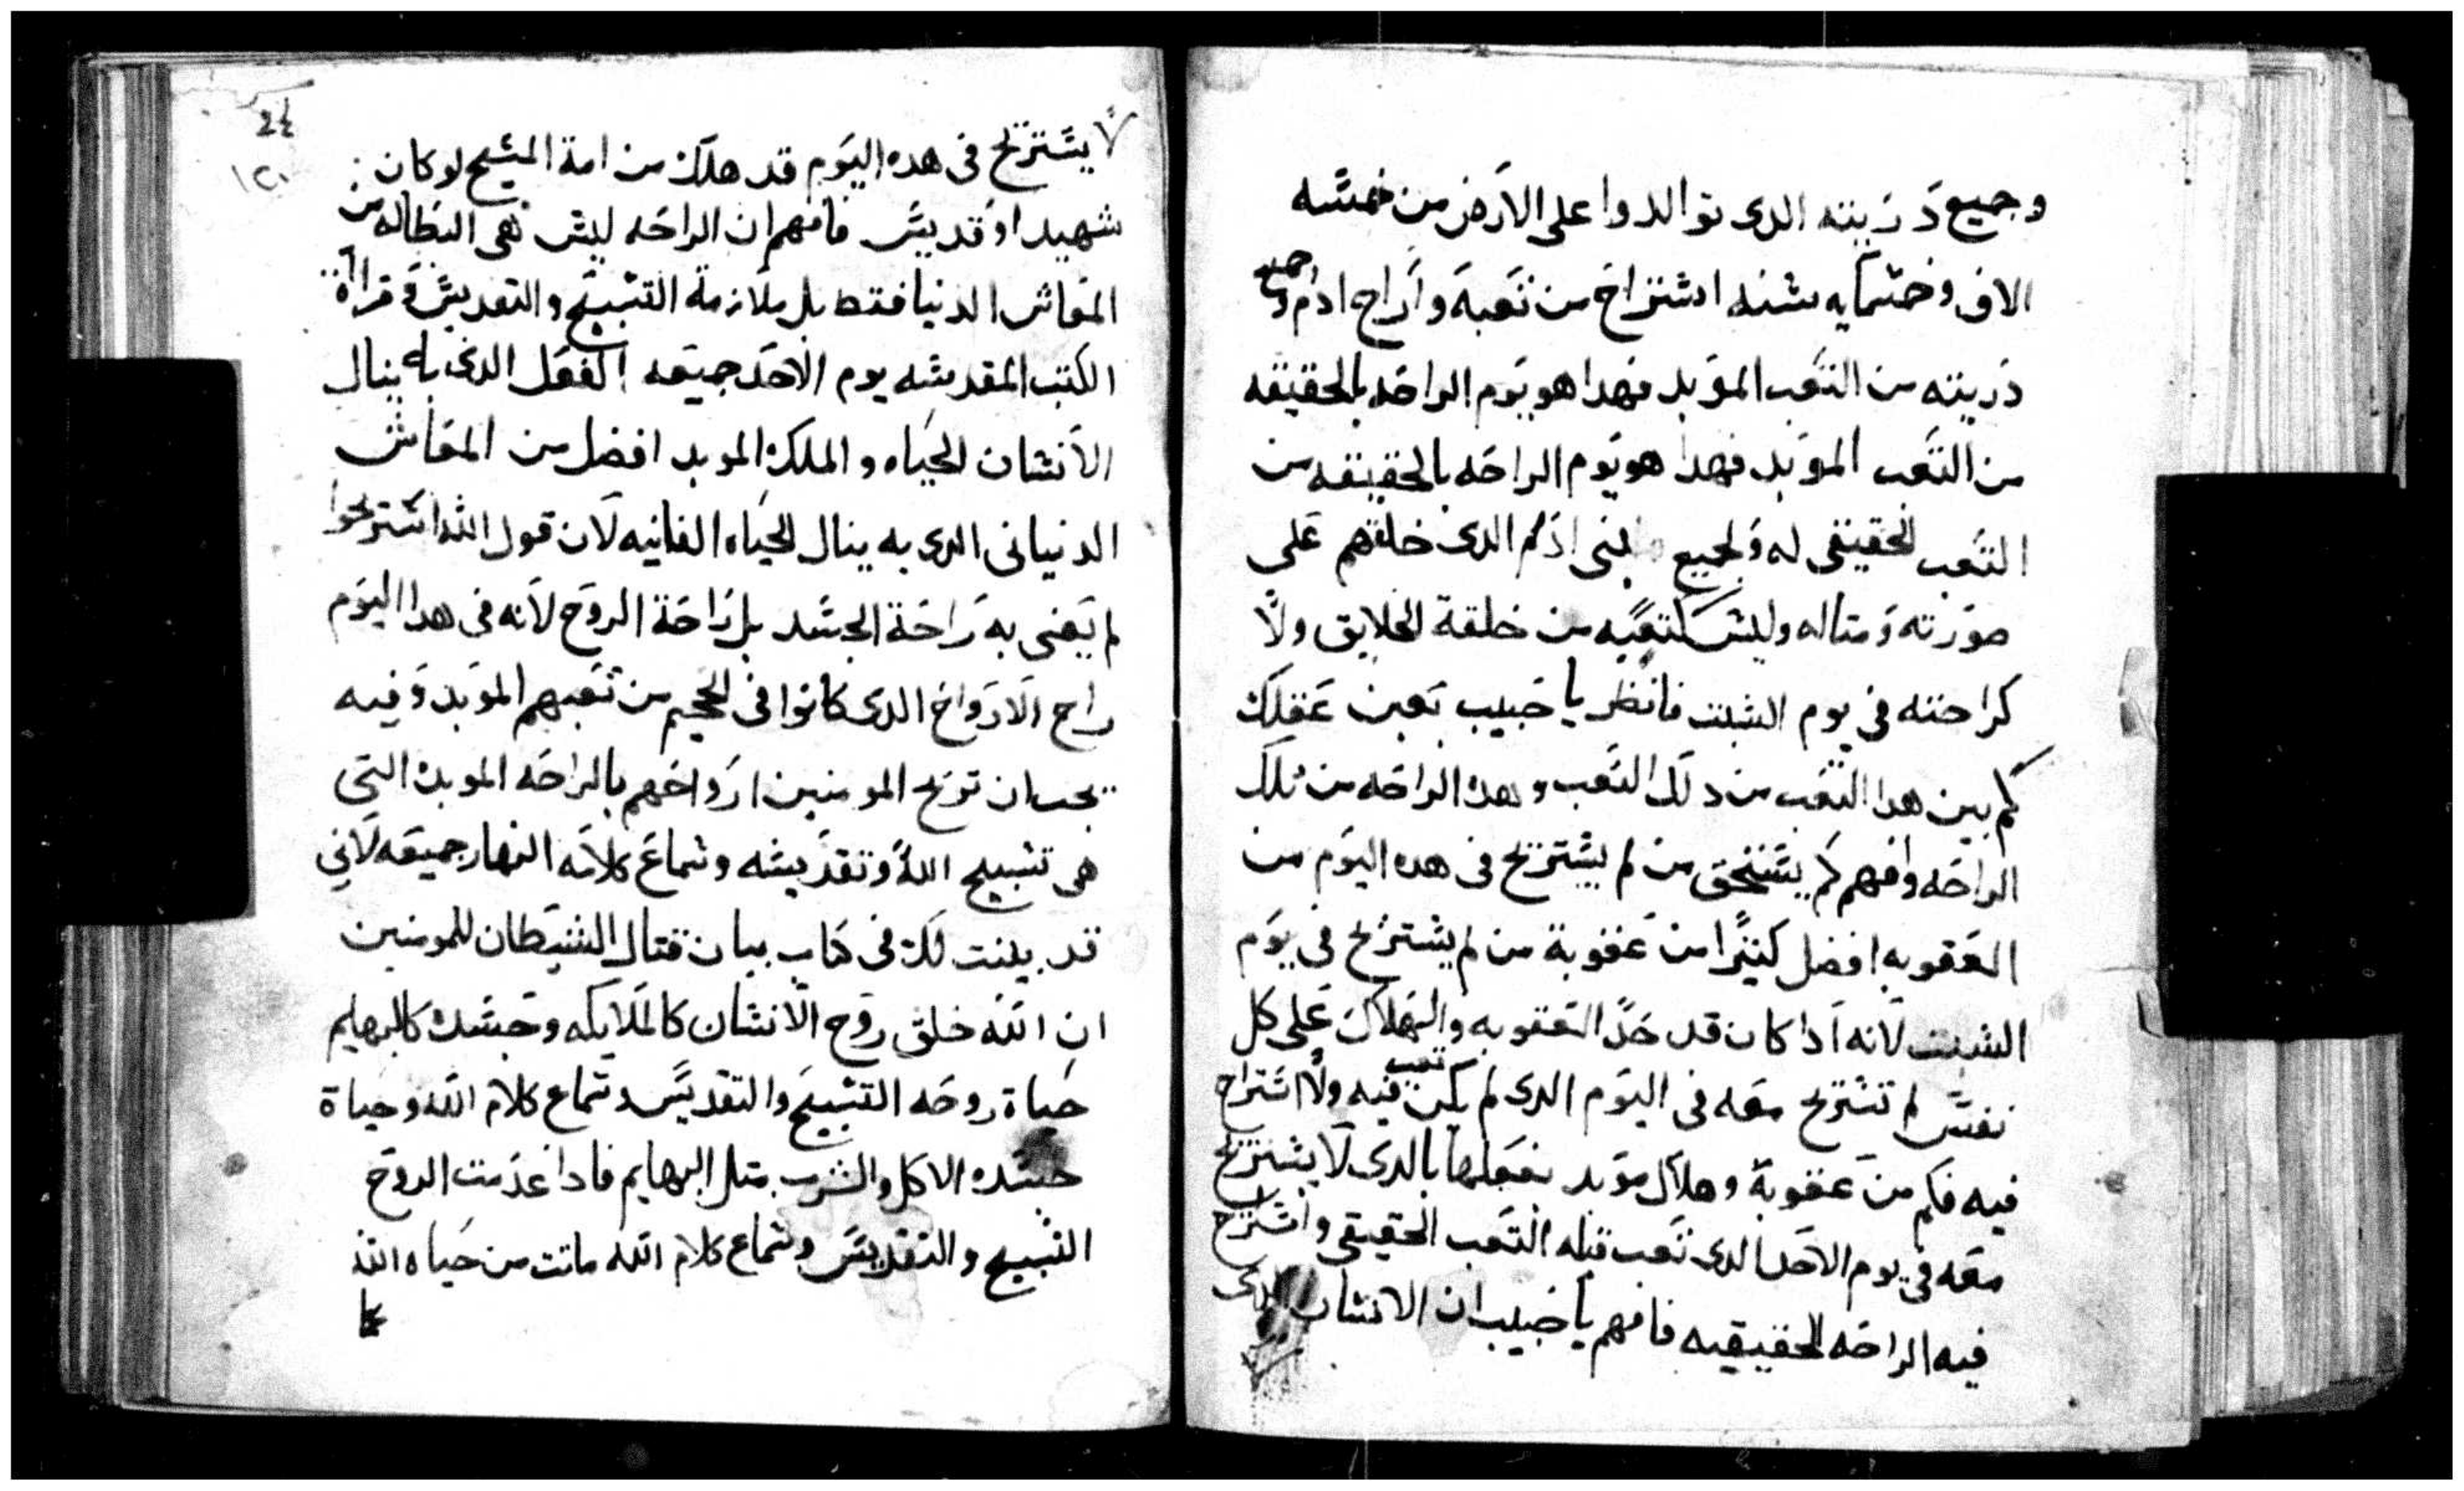 وجميع دريته الدى توالدوا على الارض من خمسه
الاف وخمسمايه سنه استراح من تعبه واراح ادم وجميع
دريته من التعب الموبد فهدا هو يوم الراحه بالحقيقه
من التعب الموبد فهدا هو يوم الراحه بالحقيقه من
التعب الحقيقى له ولجميع بنى ادم الدى خلقهم على
صورته ومتاله وليس كتعبه من خلقة الخلايق ولا
كراحته فى يوم السبت فانظر يا حبيب بعين عقلك
كم بين هدا التعب من دلك التعب وهده الراحه من تلك
الراحه وافهم كم يستحق من لم يستريح فى هده اليوم من
العقوبه افضل كتيرا من عقوبة من لم يستريح فى يوم
السبت لانه ادا كان قد حد العقوبه والهلاك على كل
نفس لم تستريح معه فى اليوم الدى لم يكن تعب فيه ولا استراح
فيه فكم من عقوبة وهلاك موبد بفعلها بالدى لا يستريح
معه فى يوم الاحد الدى تعب قبله التعب الحقيقى واستراح
فيه الراحه الحقيقيه فافهم يا حبيب ان الانسان الدى
24
١٢٠
لا يستريح فى هده اليوم قد هلك من امة المسيح لو كان
شهيد او قديس فافهم ان الراحه ليس هى البطاله من
المعاش الدنيا فقط بل ملازمة التسبيح والتقديس وقراة
الكتب المقدسه يوم الاحد جميعه الفعل الدى به ينال
الانسان الحياه والملك الموبد افضل من المعاش
الدنيانى الدى به ينال الحياه الفانيه لان قول الله استريحوا
لم يعنى به راحة الجسد بل راحة الروح لانه فى هدا اليوم
راح الارواح الدى كانوا فى الجحيم من تعبهم الموبد وفيه
يجب ان تريح المومنين ارواحهم بالراحه الموبده التى
هى تسبيح الله وتقديسه وسماع كلامه النهار جميعه لانى
قد بينت لك فى كتاب بيان قتال الشيطان للمومنين
ان الله خلق روح الانسان كالملايكه وجسده كالبهايم
حياة روحه التسبيح والتقديس وسماع كلام الله وحياة
جسده الاكل والشرب متل البهايم فادا عدمت الروح
التسبيح والتقديس وسماع كلام الله ماتت من حياه الله